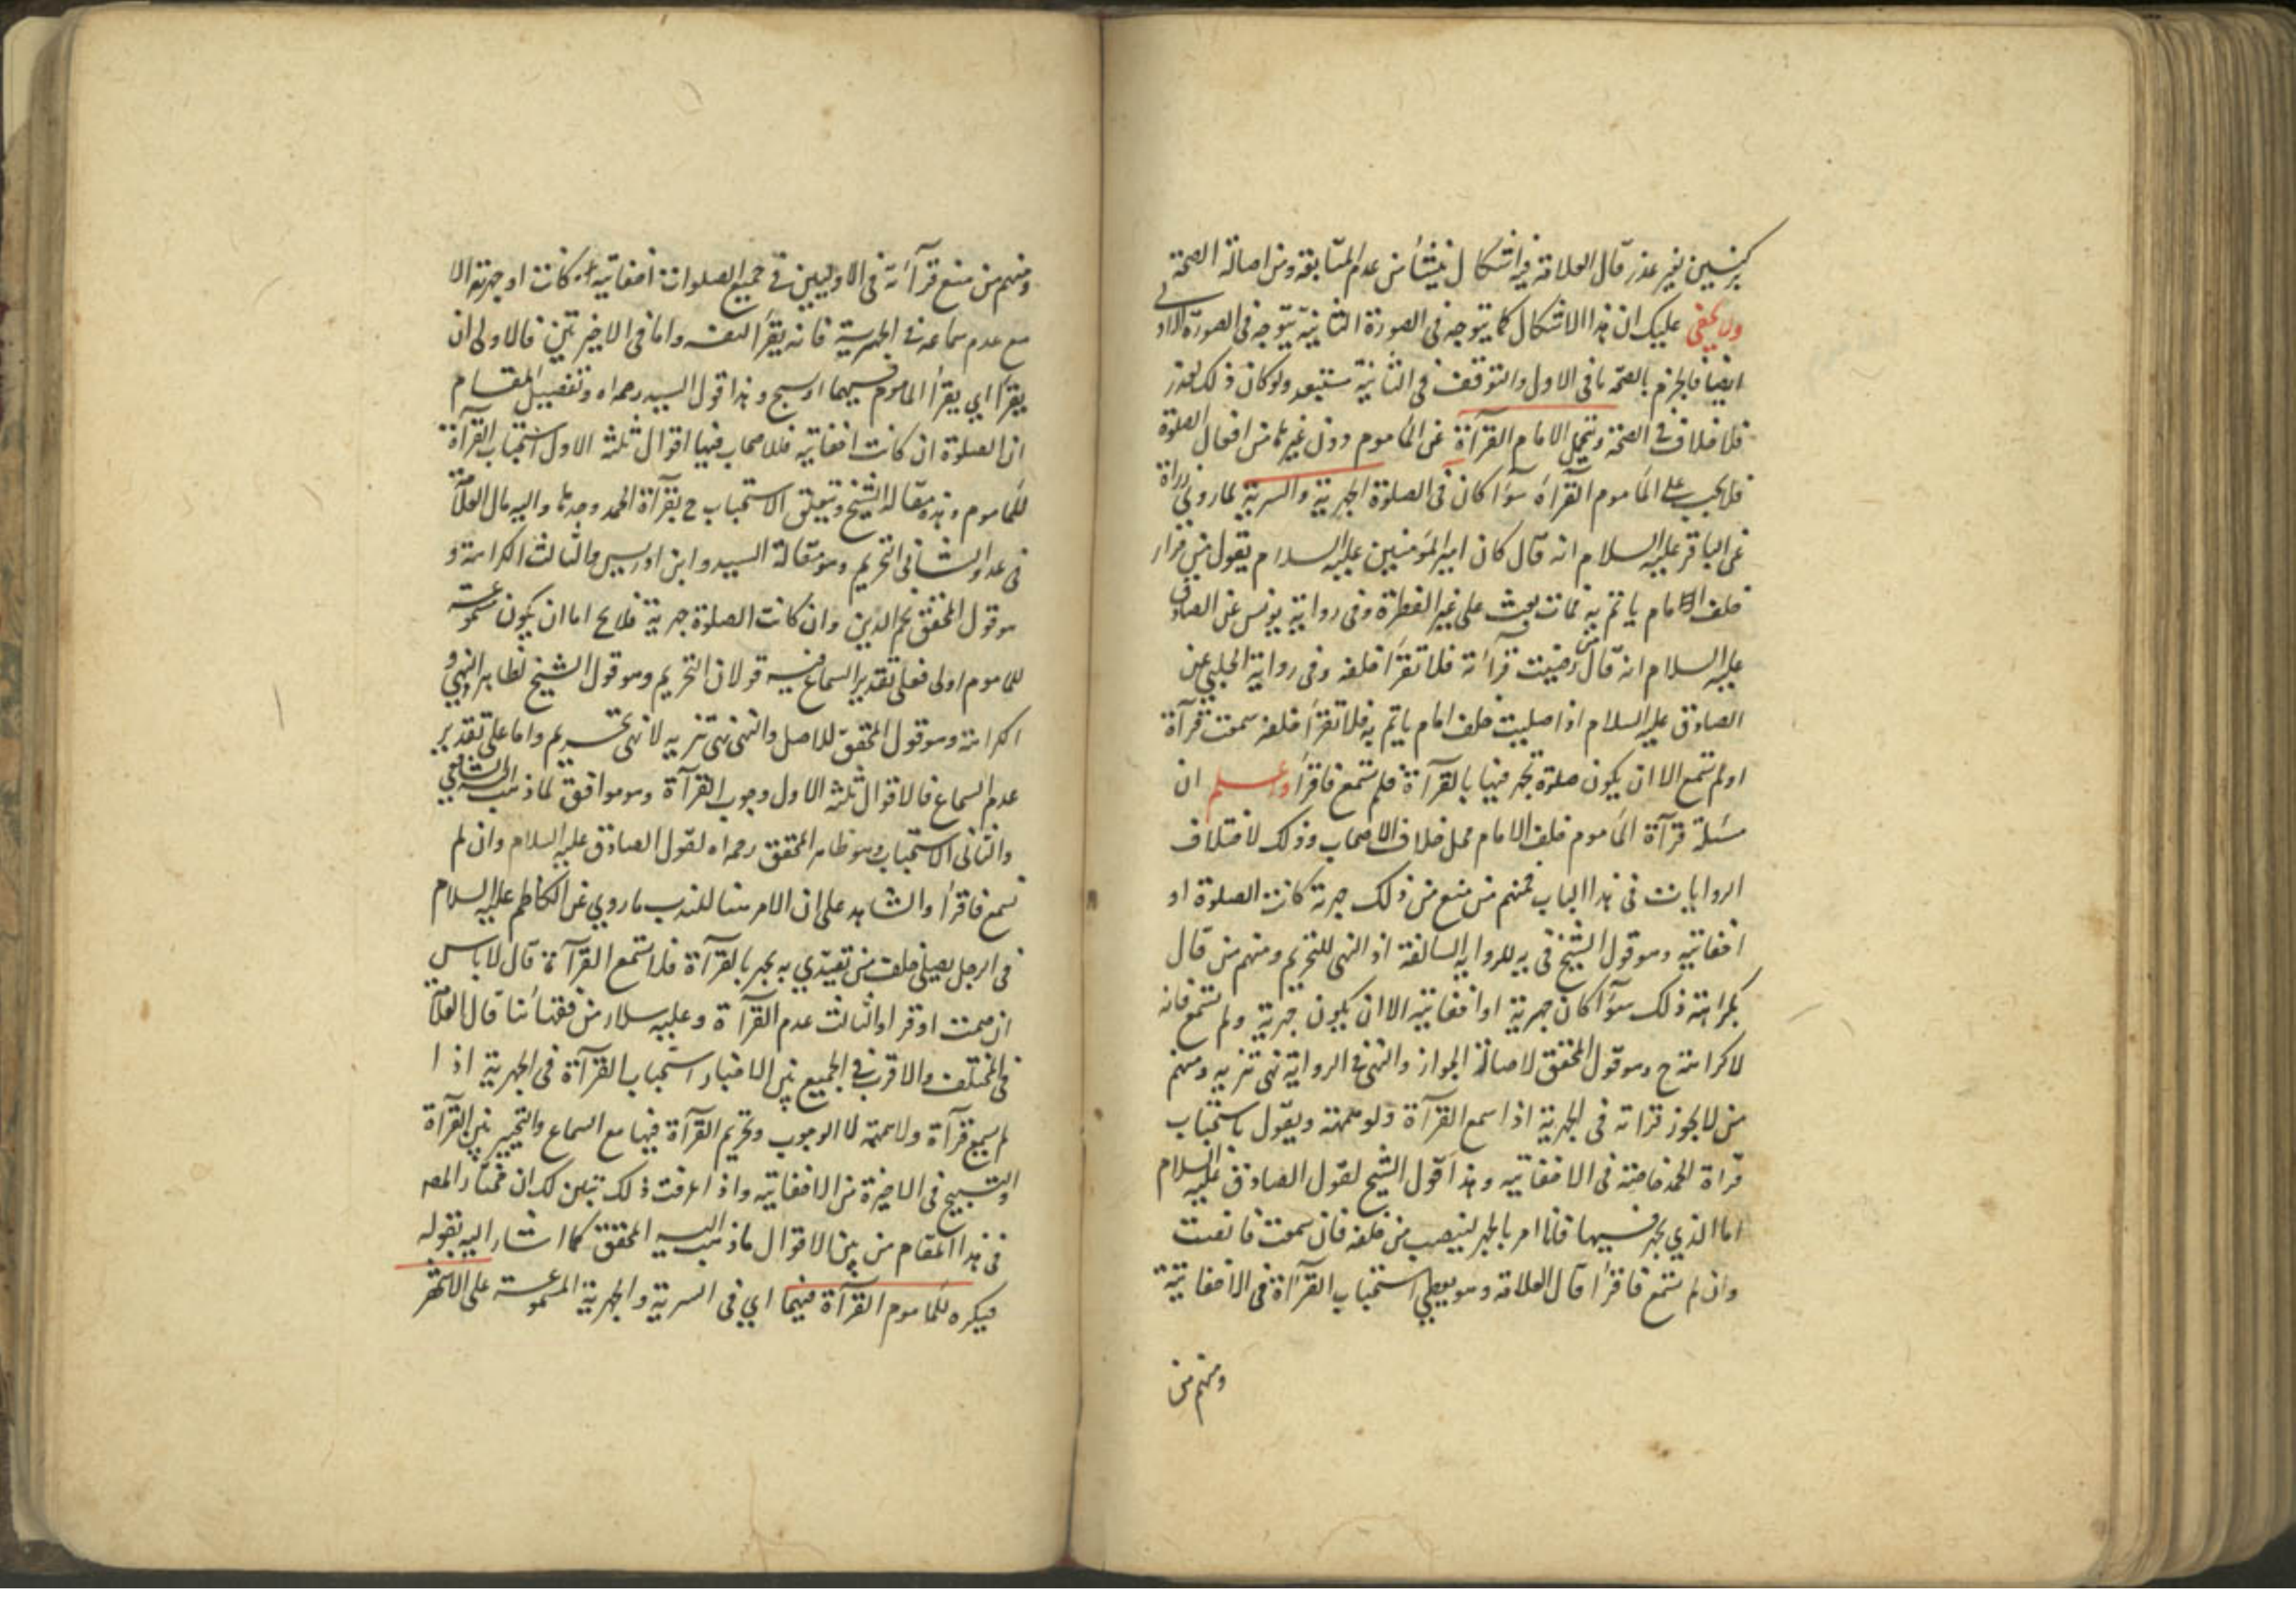 بركنين بغير عذر قال العلامة فيه اشكال ينشأ من عدم المتابعة ومن اصالة الصحة
ولا يخفى عليك ان هذا الاشكال كما يتوجه فى الصورة الثانية يتوجه فى الصورة الاولى
ايضا فالجزم بالصحة فى الاول والتوقف فى الثانية مستبعد ولو كان ذلك لعذر
فلا خلاف فى الصحة ويتحمل الامام القرآءة عن المأموم دون غيرها من افعال الصلوة
فلا يجب على المأموم القرآءة سوآء كان فى الصلوة الجهرية والسرية لما روى زرارة
عن الباقر عليه السلام انه قال كان امير المؤمنين عليه السلام يقول من قرأ
خلف امام ياتم به فمات بعث على غير الفطرة وفى رواية يونس عن الصادق
عليه السلام انه قال من رضيت قرآءته فلا تقرأ خلفه وفى رواية الحلبي عن
الصادق عليه السلام اذا صليت خلف امام ياتم به فلا تقرأ خلفه سمعت قرآءة
او لم تسمع الا ان يكون صلوة يجهر فيها بالقرآءة فلم تسمع فاقرأ واعلم ان
مسئلة قرآءة المأموم خلف الامام محل خلاف الاصحاب وذلك لاختلاف
الروايات فى هذا الباب فمنهم من منع من ذلك جهرية كانت الصلوة او
اخفاتيه وهو قول الشيخ فى يه للرواية السالفة اذ النهى للتحريم ومنهم من قال
بكراهة ذلك سوآء كان جهرية او اخفاتيه الا ان يكون جهرية ولم تسمع فانه
لا كراهة ح وهو قول المحقق لاصالة الجواز والنهى فى الرواية نهى تنزيه ومنهم
من لا يجوز قراته فى الجهرية اذا سمع القرآءة ولو همهمة ويقول باستحباب
قراة الحمد خاصة فى الاخفاتيه وهذا قول الشيخ لقول الصادق عليه السلام
اما الذي يجهر فيها فانا امر بالجهر لينصت من خلفه فان سمعت فانصت
وان لم تسمع فاقرأ قال العلامة وهو يعطى استحباب القرآءة فى الاخفاتية
ومنهم من
ومنهم من منع قرآئته فى الاوليين فى جميع الصلوات اخفاتية كانت او جهرية الا
مع عدم سماعه فى الجهرية فانه يقرأ لنفسه واما فى الاخيرتين فالاولى ان
يقرأ اي يقرأ المأموم فيهما او يسبح وهذا قول السيد رحمه الله وتفصيل المقام
ان الصلوة ان كانت اخفاتيه فللاصحاب فيها اقوال ثلثه الاول استحباب القرآءة
للمأموم وهذه مقالة الشيخ ويتعلق الاستحباب ح بقرآءة الحمد وحدها واليه مال العلامة
فى عد والثانى التحريم وهو مقالة السيد وابن ادريس والثالث الكراهة و
هو قول المحقق نجم الدين وان كانت الصلوة جهرية فلا يخ اما ان يكون مسموعة
للمأموم اولى فعلى تقدير السماع فيه قولان التحريم وهو قول الشيخ لظاهر النهي و
الكراهة وهو قول المحقق للاصل والنهى نهى تنزيه لا نهى تحريم واما على تقدير
عدم السماع فالاقوال ثلثه الاول وجوب القرآءة وهو موافق لما ذهب اليه الشافعي
والثانى الاستحباب وهو ظاهر المحقق رحمه الله لقول الصادق عليه السلام وان لم
تسمع فاقرأ والشاهد على ان الامر هنا للندب ما روي عن الكاظم عليه السلام
فى الرجل يصلى خلف من تقتدي به يجهر بالقرآءة فلا تسمع القرآءة قال لا باس
ان صمت او قرا والثالث عدم القرآءة وعليه سلار من فقهائنا قال العلامة
فى المختلف والاقرب فى الجميع بين الاخبار استحباب القرآءة فى الجهرية اذا
لم يسمع قرآءة ولا همهمة لا الوجوب وتحريم القرآءة فيها مع السماع والتخيير بين القرآءة
والتسبيح فى الاخيرة من الاخفاتيه واذا عرفت ذلك تبين لك ان مختار المصـ
فى هذا المقام من بين الاقوال ما ذهب اليه المحقق كما اشار اليه بقوله
فيكره للمأموم القرآءة فيهما اي فى السرية والجهرية المسموعة على الاشهر